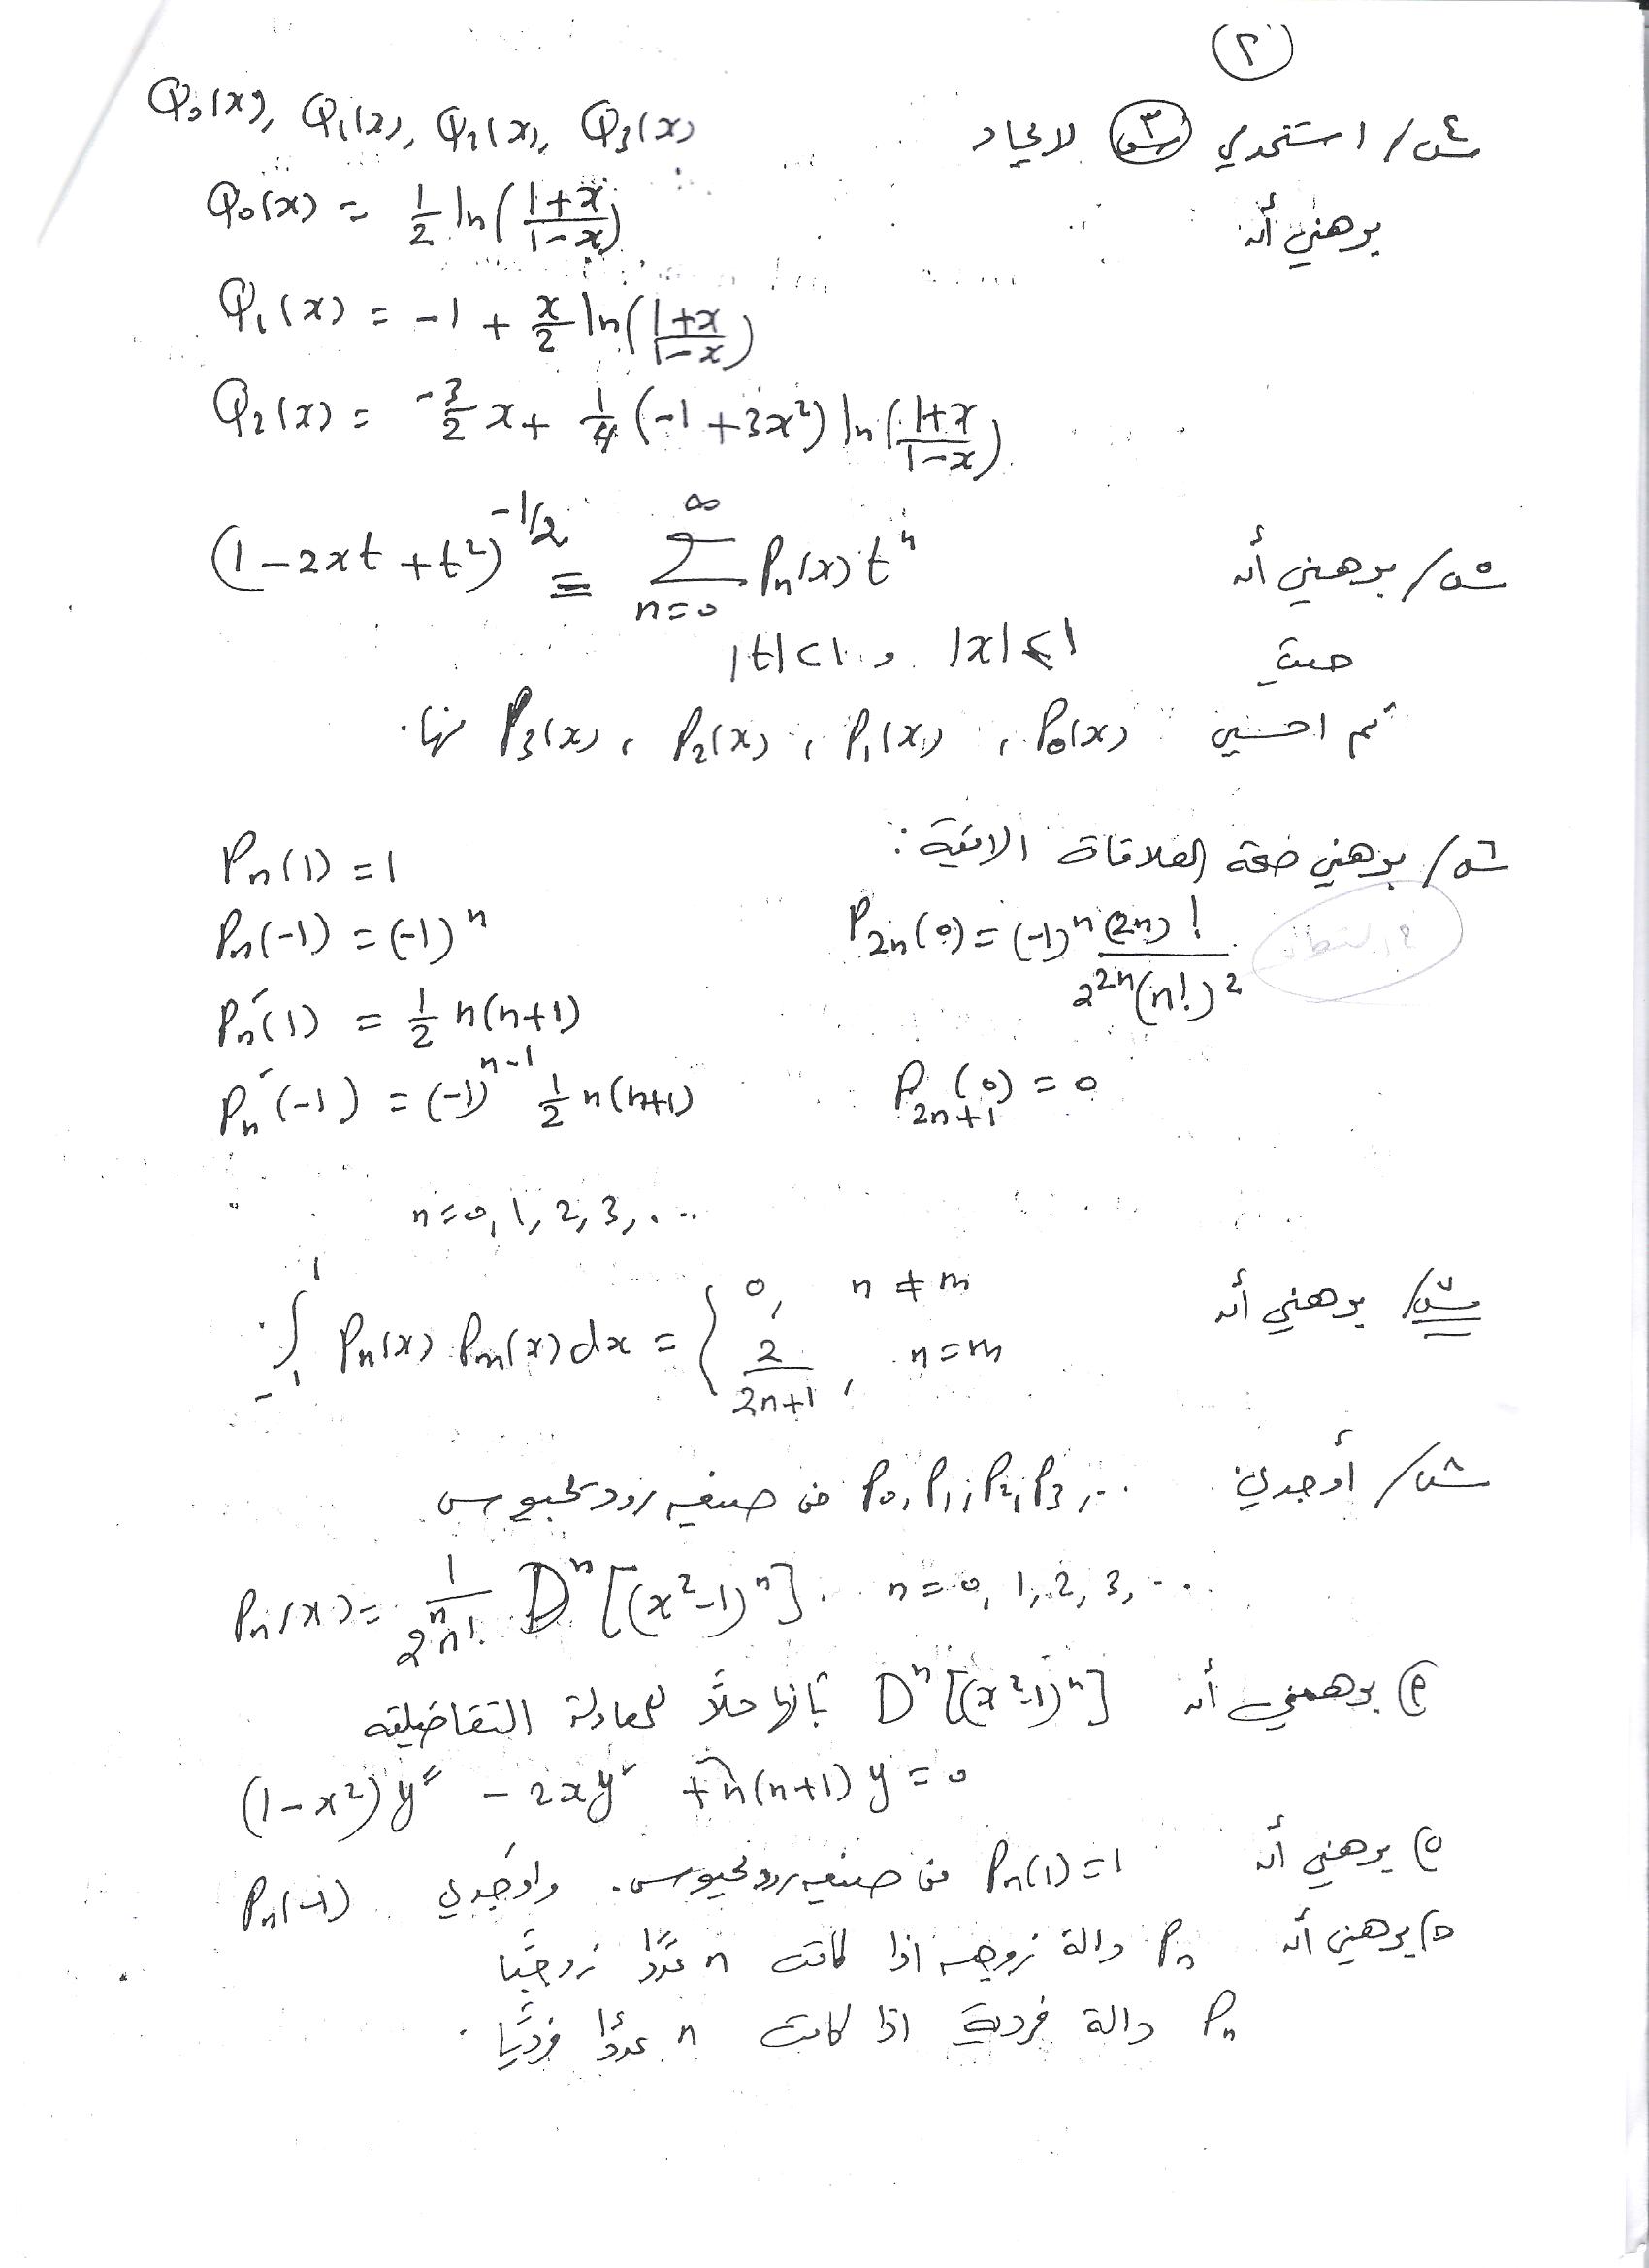 (٢)
س٤/ استخدمي س٣ لايجاد Q₀(x), Q₁(x), Q₂(x), Q₃(x)
برهني أن Q₀(x) = 1/2 ln((1+x)/(1-x))
Q₁(x) = -1 + x/2 ln((1+x)/(1-x))
Q₂(x) = -3/2 x + 1/4 (-1+3x²) ln((1+x)/(1-x))
س٥/ برهني أن (1-2xt+t²)^(-1/2) = Σ_{n=0}^{∞} Pₙ(x) tⁿ
حيث |x|≤1 و |t|<1
ثم احسبي P₀(x) ، P₁(x) ، P₂(x) ، P₃(x) منها.
س٦/ برهني صحة العلاقات الاتية:
Pₙ(1) = 1
Pₙ(-1) = (-1)ⁿ P₂ₙ(0) = (-1)ⁿ (2n)! / (2²ⁿ(n!)²)
Pₙ′(1) = 1/2 n(n+1)
Pₙ′(-1) = (-1)ⁿ⁻¹ 1/2 n(n+1) P₂ₙ₊₁(0) = 0
n=0, 1, 2, 3, ...
س٧/ برهني أن ∫_{-1}^{1} Pₙ(x) Pₘ(x) dx = { 0, n ≠ m
2/(2n+1), n = m
س٨/ أوجدي P₀, P₁, P₂, P₃, ... من صيغه رودريجيوس
Pₙ(x) = 1/(2ⁿ n!) Dⁿ[(x²-1)ⁿ] n = 0, 1, 2, 3, ...
برهني أن Dⁿ[(x²-1)ⁿ] بأنها حلاً للمعادلة التفاضليه
(1-x²)y″ - 2xy′ + n(n+1)y = 0
برهني أن Pₙ(1)=1 من صيغه رودريجيوس. واوجدي Pₙ(-1)
برهني أن Pₙ دالة زوجيه اذا كانت n عددًا زوجيًا
Pₙ دالة فردية اذا كانت n عددًا فرديًا.